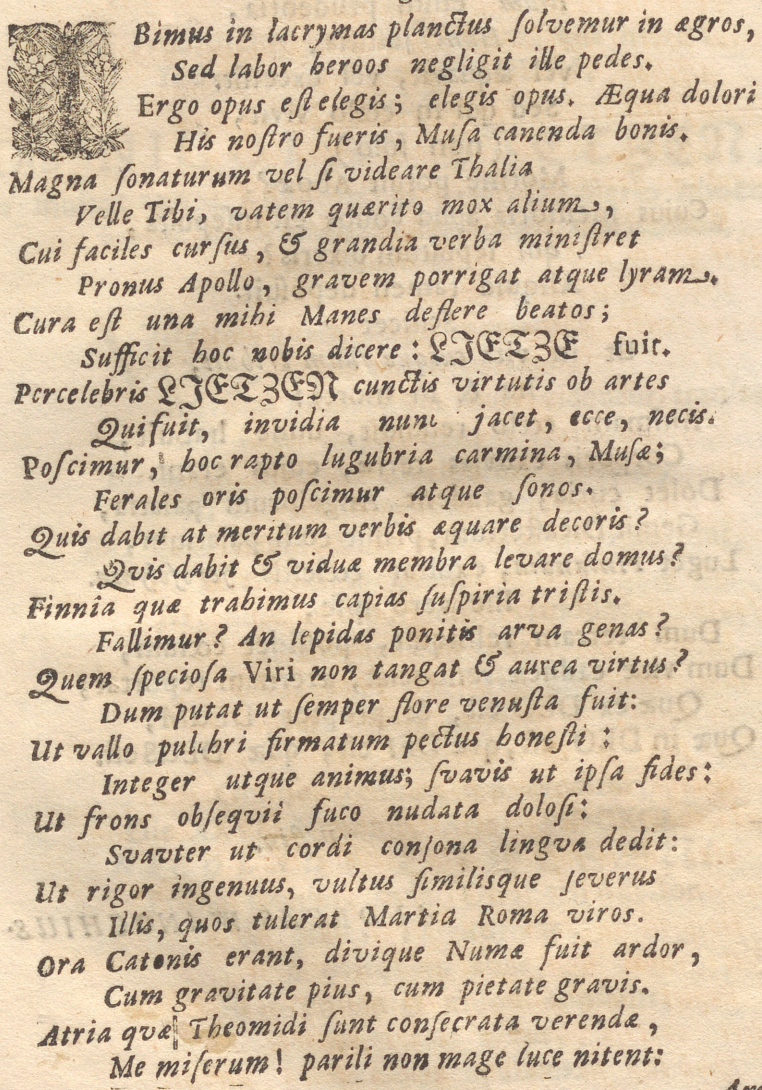 IBimus in lacrymas planctus ſolvemur in ægros,
Sed labor heroos negligit ille pedes.
Ergo opus eſt elegis; elegis opus. Æqua dolori
His noſtro fueris, Muſa canenda bonis.
Magna ſonaturum vel ſi videare Thalia
Velle Tibi, vatem quærito mox alium,
Cui faciles curſus, & grandia verba miniſtret
Pronus Apollo, gravem porrigat atque lyram.
Cura eſt una mihi Manes deflere beatos;
Sufficit hoc nobis dicere: LJETZE fuit.
Percelebris LJETZEN cunctis virtutis ob artes
Qui fuit, invidia nunc jacet, ecce, necis.
Poſcimur, hoc rapto lugubria carmina, Muſæ;
Ferales oris poſcimur atque ſonos.
Quis dabit at meritum verbis æquare decoris?
Qvis dabit & viduæ membra levare domus?
Finnia quæ trahimus capias ſuſpiria triſtis.
Fallimur? An lepidas ponitis arva genas?
Quem ſpecioſa Viri non tangat & aurea virtus?
Dum putat ut ſemper flore venuſta fuit:
Ut vallo pulchri firmatum pectus honeſti:
Integer utque animus; ſvavis ut ipſa fides:
Ut frons obſequii fuco nudata doloſi:
Svavter ut cordi conſona lingva dedit:
Ut rigor ingenuus, vultus ſimilisque ſeverus
Illis, quos tulerat Martia Roma viros.
Ora Catonis erant, divique Numæ fuit ardor,
Cum gravitate pius, cum pietate gravis.
Atria quæ Theomidi ſunt conſecrata verendæ,
Me miſerum! parili non mage luce nitent: